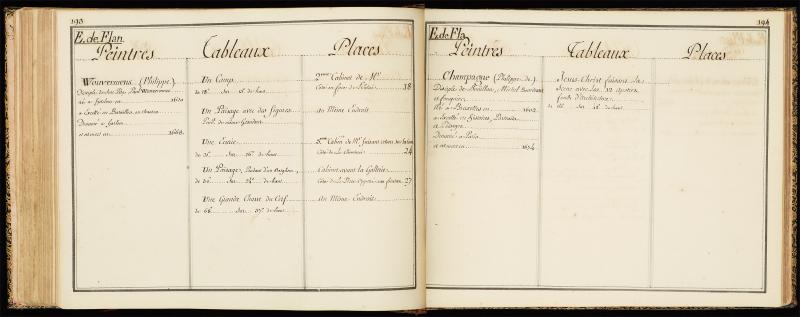 193
E. de Flan.
Peintres
Tableaux
Places
Wouvermens (Philippe)
Disciple de son Père Paul Wouvermens
né a Harlem en 1620
a excellé en Batailles, en chasses
Demeuré a Harlem
et mort en 1668
Un Camp
de 18. Sur 15. de haut
2me Cabinet de Mr
Coté en face de 18
Un Païsage avec des figures
Pareil de même Grandeur
Au Même Endroit
Une Ecurie
de 21. Sur 16. de haut
Cabinet de Mr faisant
Coté de la Cheminée 24
Un Païsage
de 30. Sur 24. de haut
Cabinet avant la Gallerie
27
Une Grande Chasse du Cerf
de 68. Sur 37. de haut
Au Même Endroit
194
E. de Fla
Peintres
Tableaux
Places
Champagne (Philippe de)
Disciple de Bouillon, Michel Bourdeaux
et Fouquiere
Né a Bruxelles en 1602
a excellé en Histoires, Portraits
et Païsages
Demeuré a Paris
et mort en 1674
Jesus-Christ faisant la
Scene avec les 12 Apotres
fonds d'Architecture
de haut